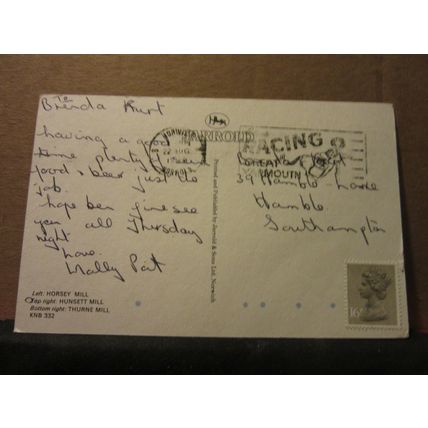 To
Brenda Kurt
having a good
time plenty of beer
food & beer just the
job.
hope ben fine see
you all Thursday
night
Love.
Wally Pat
Left: HORSEY MILL
Top right: HUNSETT MILL
Bottom right: THURNE MILL
KNB 332
JARROLD
Printed and Published by Jarrold & Sons Ltd, Norwich
NORWICH
NORFOLK
RACING
GREAT
MOUTH
39 Hamble Lane
Hamble
Southampton
16P